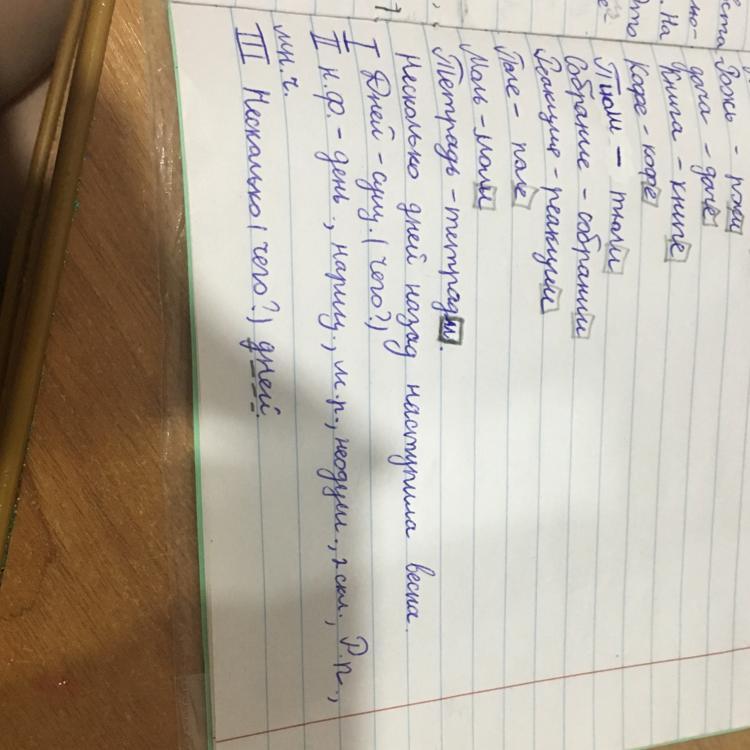 Рожь - ржи
дача - даче
Книга - книге
Кофе - кофе
Тюль - тюли
Собрание - собрании
Реакция - реакции
Поле - поле
Моль - моли
Тетрадь - тетради.
Несколько дней назад наступила весна.
I Дней - сущ. (чего?)
II н.ф. - день, нариц., м.р., неодуш., 2 скл., Р.п.,
мн.ч.
III Несколько (чего?) дней.